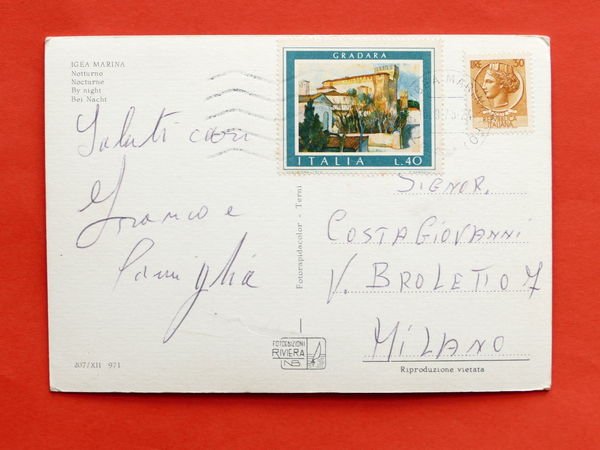 IGEA MARINA
Notturno
Nocturne
By night
Bei Nacht
Saluti cari
Franco e
famiglia
GRADARA
ITALIA L.40
LIRE 30
ITALIANE
IGEA-MARINA
Fotorapidacolor - Terni
SIGNOR.
COSTA GIOVANNI
V. BROLETTO 7
MILANO
FOTOEDIZIONI
RIVIERA
207/XII 971
Riproduzione vietata